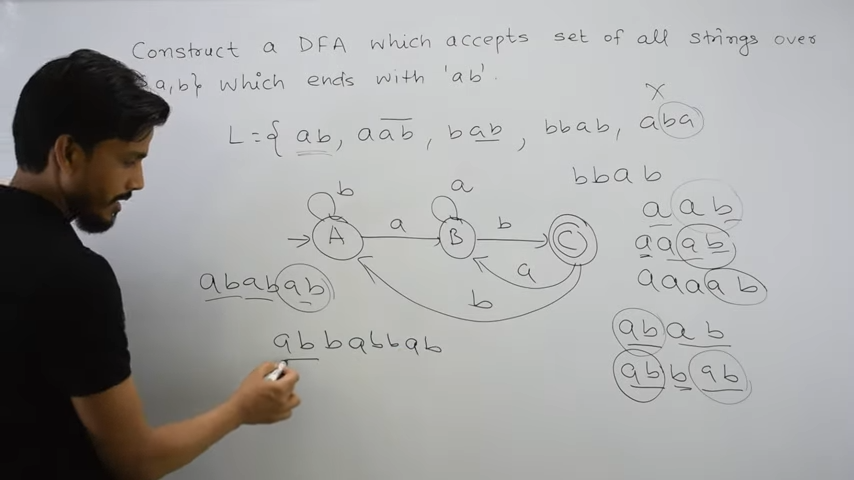 Construct a DFA which accepts set of all strings over
a,b} which ends with 'ab'.
X
L={ ab, aab, bab, bbab, aba
bbab
b
a
aab
A
a
B
b
C
aaab
a
aaaab
ababab
b
abab
abbabbab
abbab